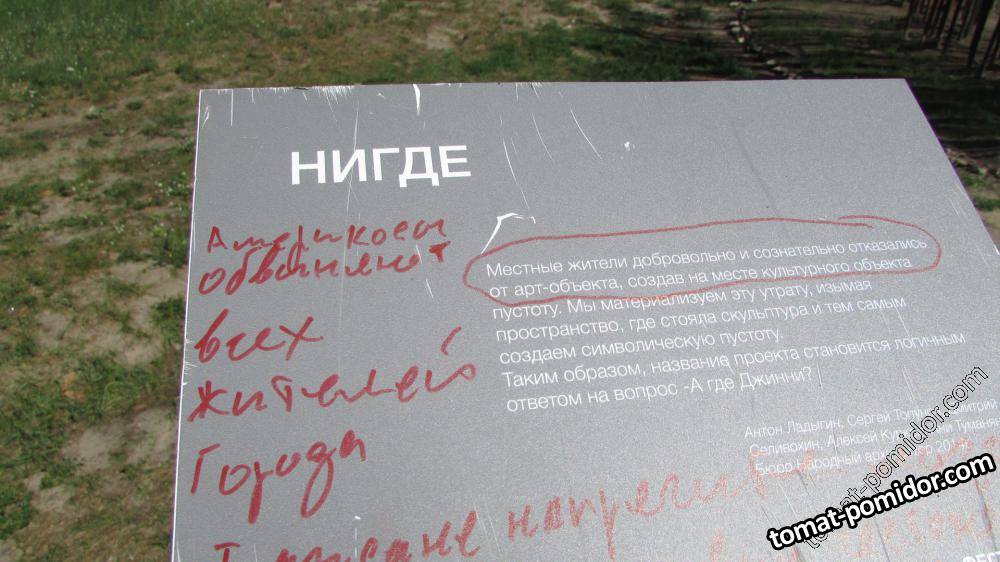 НИГДЕ
Америкосы
обвиняют
всех
жителей
Города
Местные жители добровольно и сознательно отказались
от арт-объекта, создав на месте культурного объекта
пустоту. Мы материализуем эту утрату, изымая
пространство, где стояла скульптура и тем самым
создаем символическую пустоту.
Таким образом, название проекта становится логичным
ответом на вопрос -А где Джинни?
Антон Ладыгин, Сергей
Селивохин, Алексей
Бюро Народный
tomat-pomidor.com
tomat-pomidor.com